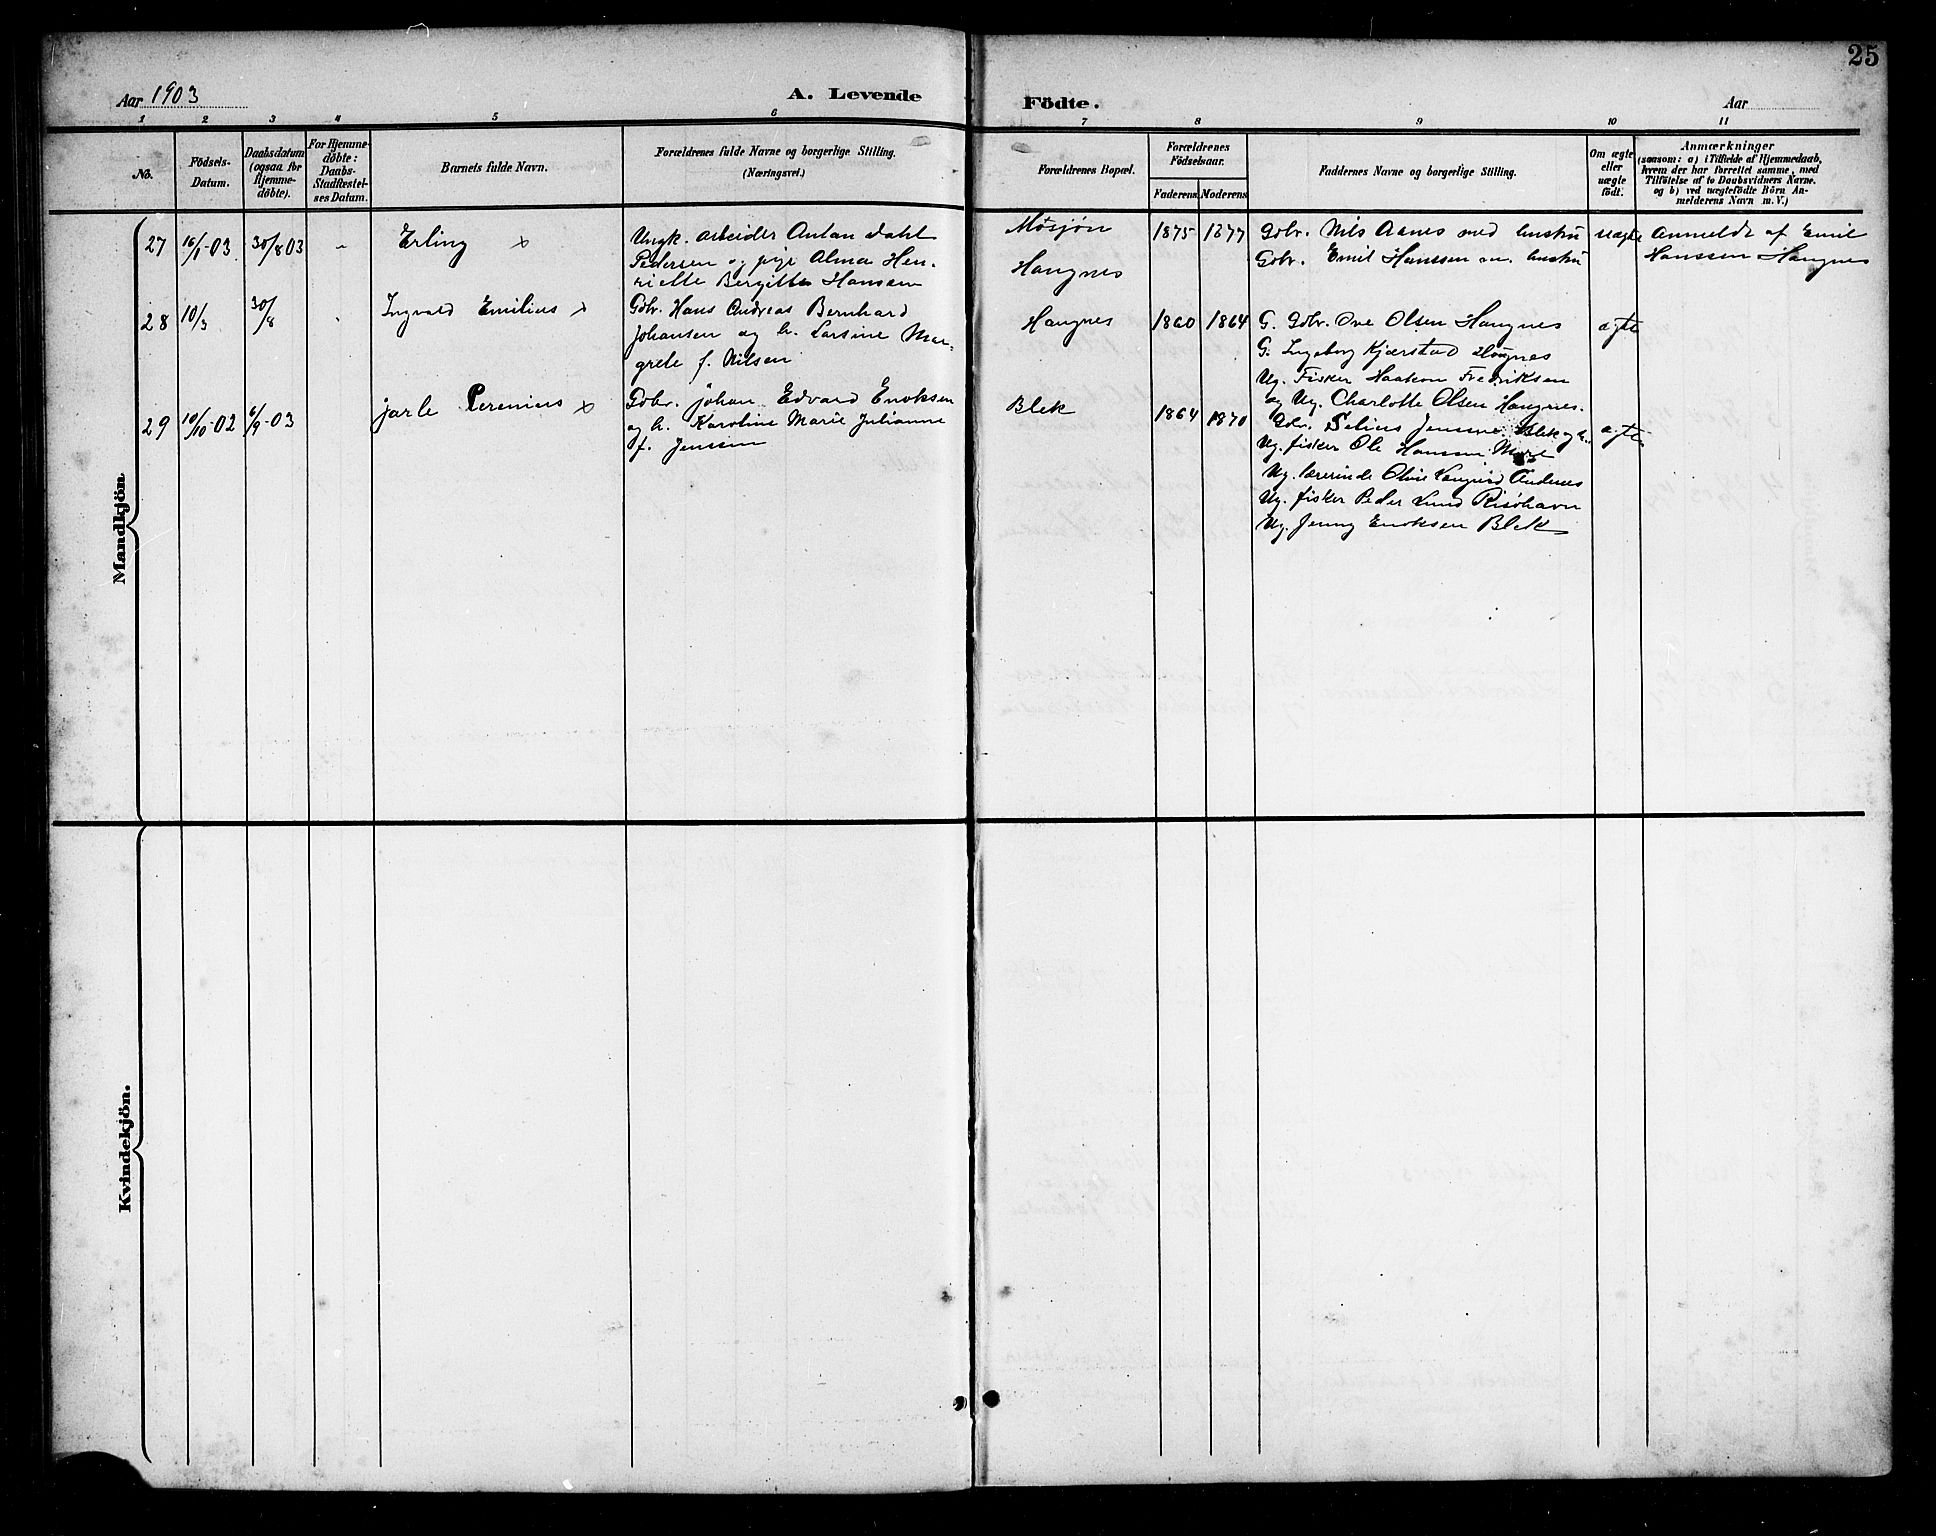 25
Aar 1903
A. Levende
Födte.
Aar
1 2 3 4 5 6 7 8 9 10 11
No.
Födsels-
Datum.
Daabsdatum
(ogsaa for
Hjemme-
döbte).
For Hjemme-
döbte:
Daabs-
Stadfæstel-
ses Datum.
Barnets fulde Navn.
Forældrenes fulde Navne og borgerlige Stilling.
(Næringsvei.)
Forældrenes Bopæl.
Forældrenes
Födselsaar.
Faderens Moderens
Faddernes Navne og borgerlige Stilling.
Om ægte
eller
uægte
födt.
Anmærkninger
(saasom: a) i Tilfælde af Hjemmedaab,
hvem der har forrettet samme, med
Tilföielse af to Daabsvidners Navne.
og b) ved uægtefödte Börn An-
melderens Navn m. V.)
Mandkjön.
27 16/1-03 30/8 03 - Erling x
Ungk. arbeider Antan Dahl
Pedersen og pige Alma Hen-
riette Bergitte Hansen
Mosjøn
Haugnes
1875 1877
Gdbr. Nils Aanes med hustru
Gdbr. Emil Hanssen m. hustru
uægte
Anmeldt af Emil
Hanssen Haugnes
28 10/3 30/8 - Ingvald Emilius x
Gdbr. Hans Andreas Bernhard
Johansen og h. Larsine Mar-
grete f. Nilsen
Haugnes
1860 1864
G. Gdbr. Ove Olsen Haugnes
G. Ingeborg Kjærstad Haugnes
Ug. Fisker Haakon Fredriksen
og Ug. Charlotte Olsen Haugnes.
ægte
29 10/10-02 6/9-03 Jarle Perenius x
Gdbr. Johan Edvard Enoksen
og h. Karoline Marie Julianne
f. Jenssen
Blek
1864 1870
Gdbr. Selius Jenssen Blek og h.
Ug. fisker Ole Hanssen
Ug. lærerinde Oline Andenes
Ug. fisker Peder Lund Risøhavn
Ug. Jenny Enoksen Blek
ægte
Kvindekjön.